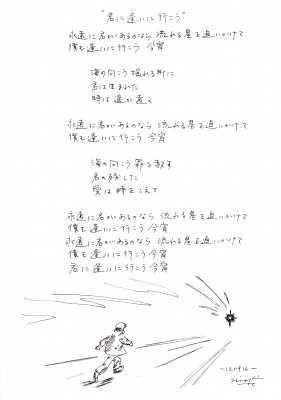 "君に逢いに行こう"
永遠に君があるのなら 流れる星を追いかけて
僕も逢いに行こう 今宵
海の向こう 揺れる町に
君は生まれた
時は遥か遠く
永遠に君があるのなら 流れる星を追いかけて
僕も逢いに行こう 今宵
海の向こう 罪を赦す
君の残した
愛は時をこえて
永遠に君があるのなら 流れる星を追いかけて
僕も逢いに行こう 今宵
永遠に君があるのなら 流れる星を追いかけて
僕も逢いに行こう 今宵
君に逢いに行こう 今宵
-120916-